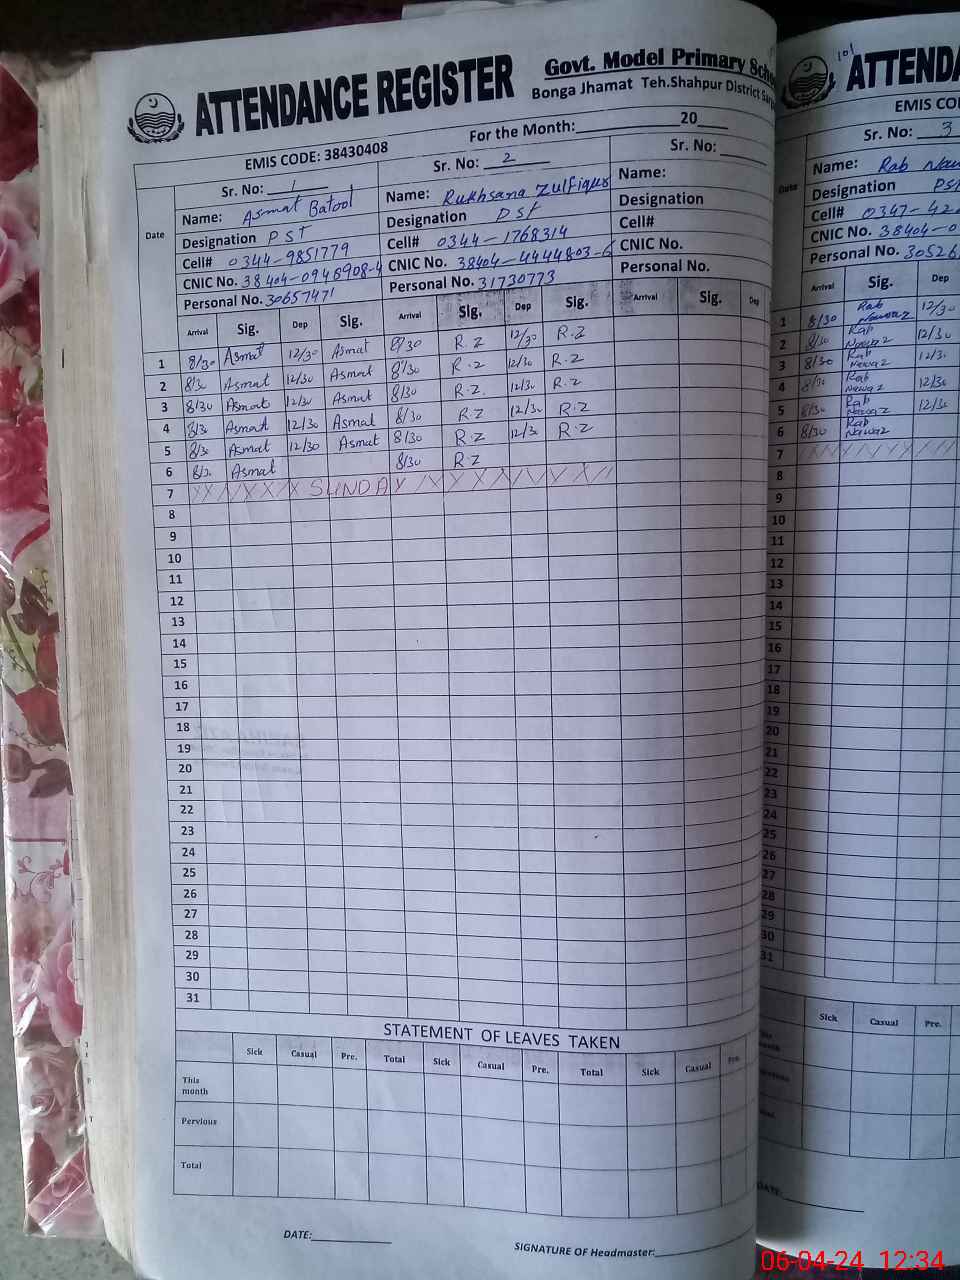 ATTENDANCE REGISTER
Govt. Model Primary
Bonga Jhamat Teh.Shahpur District
EMIS CODE: 38430408
For the Month:____________ 20____
Date
Sr. No: 1
Name: Asmat Batool
Designation PST
Cell# 0344-9851779
CNIC No. 38404-0948908-4
Personal No. 30657471
Sr. No: 2
Name: Rukhsana Zulfiqar
Designation PST
Cell# 0344-1768314
CNIC No. 38404-4444803-6
Personal No. 31730773
Sr. No:
Name:
Designation
Cell#
CNIC No.
Personal No.
Arrival Sig. Dep Sig. Arrival Sig. Dep Sig. Arrival Sig. Dep
1 8/30 Asmat 12/30 Asmat 8/30 R.Z 12/30 R.Z
2 8/30 Asmat 12/30 Asmat 8/30 R.Z 12/30 R.Z
3 8/30 Asmat 12/30 Asmat 8/30 R.Z 12/30 R.Z
4 8/30 Asmat 12/30 Asmat 8/30 R.Z 12/30 R.Z
5 8/30 Asmat 12/30 Asmat 8/30 R.Z 12/30 R.Z
6 8/30 Asmat 8/30 R.Z
7 SUNDAY
8
9
10
11
12
13
14
15
16
17
18
19
20
21
22
23
24
25
26
27
28
29
30
31
STATEMENT OF LEAVES TAKEN
Sick Casual Pre. Total Sick Casual Pre. Total Sick Casual Pre.
This month
Pervious
Total
DATE:____________
SIGNATURE OF Headmaster:____________
101
ATTENDA
EMIS CO
Date
Sr. No: 3
Name: Rab
Designation PS
Cell# 0347-42
CNIC No. 38404-0
Personal No. 30526
Arrival Sig. Dep
1 8/30 Rab Nawaz 12/30
2 8/30 Rab Nawaz 12/30
3 8/30 Rab Nawaz 12/3
4 8/30 Rab Nawaz 12/30
5 8/30 Rab Nawaz 12/30
6 8/30 Rab Nawaz
7
8
9
10
11
12
13
14
15
16
17
18
19
20
21
22
23
24
25
26
27
28
29
30
31
Sick Casual Pre.
DATE:
06-04-24 12:34